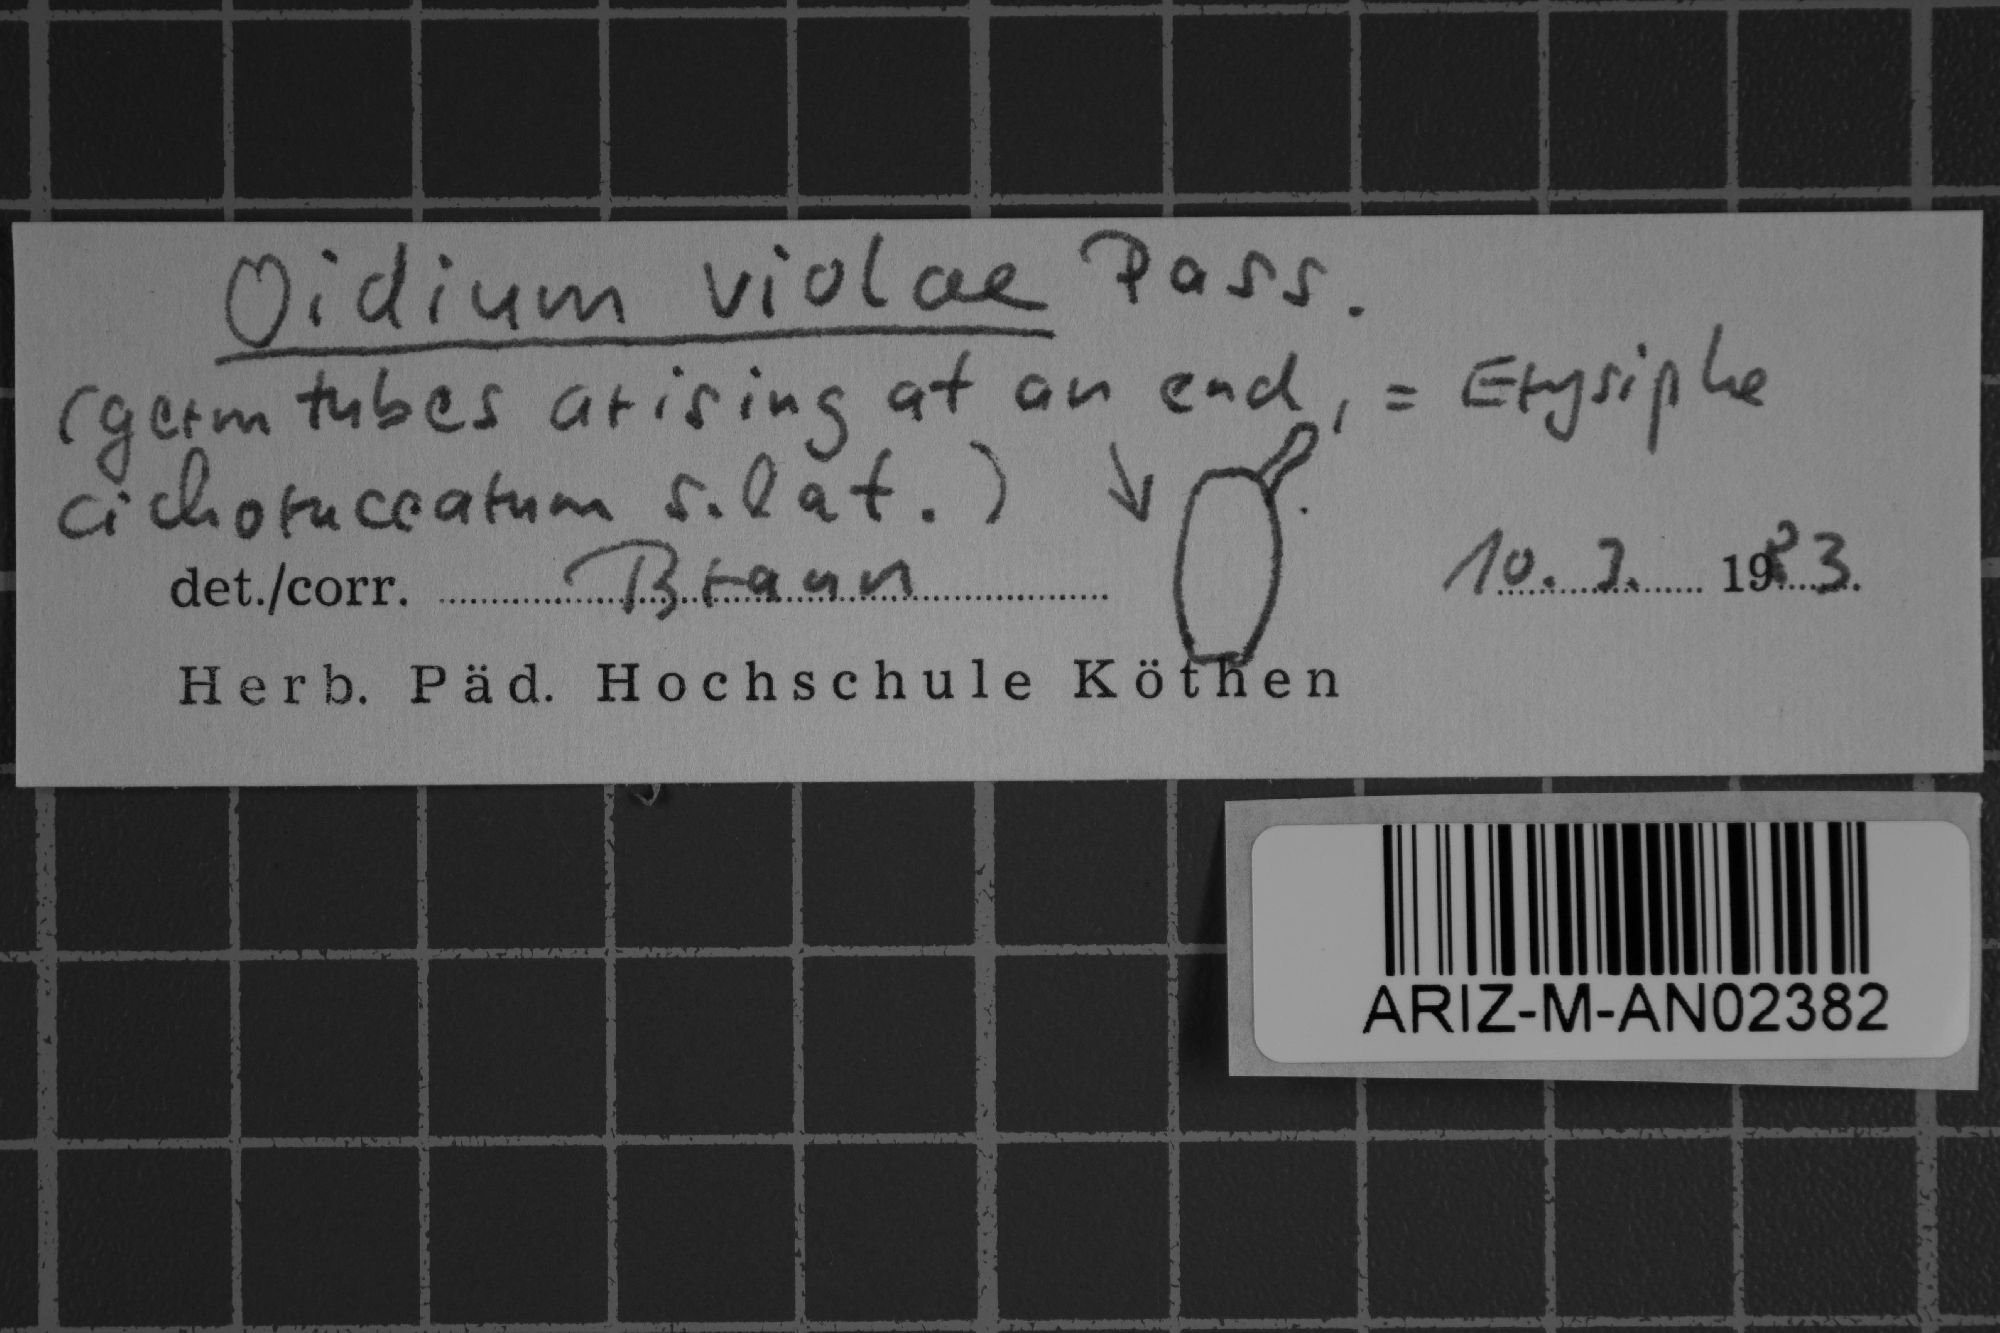 Oidium violae Pass.
(germ tubes arising at an end, = Erysiphe
cichoracearum s. lat.)
det./corr. Braun 10. 3. 1983.
Herb. Päd. Hochschule Köthen
ARIZ-M-AN02382